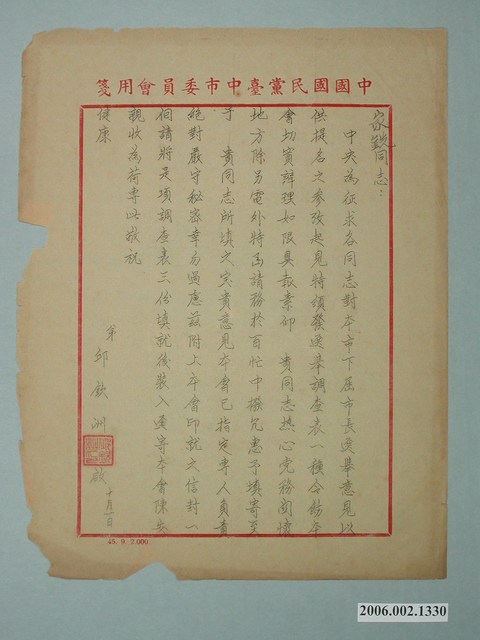 中國國民黨臺中市委員會用箋
家銳同志：
中央為征求各同志對本市下屆市長選舉意見以
供提名之參攷起見特頒發選舉調查表一種令飭本
會切實辦理如限具報素仰　貴同志熱心党務関懷
地方除另電外特函請務於百忙中撥冗惠予填寄至
于　貴同志所填之寶貴意見本會已指定專人負責
絕對嚴守秘密幸勿過慮茲附上本會印就之信封一
個請將是項調查表三份填就後裝入逕寄本會陳
親收為荷專此敬祝
健康
弟　邱欽洲　啟　十月一日
45. 8. 2.000
2006.002.1330